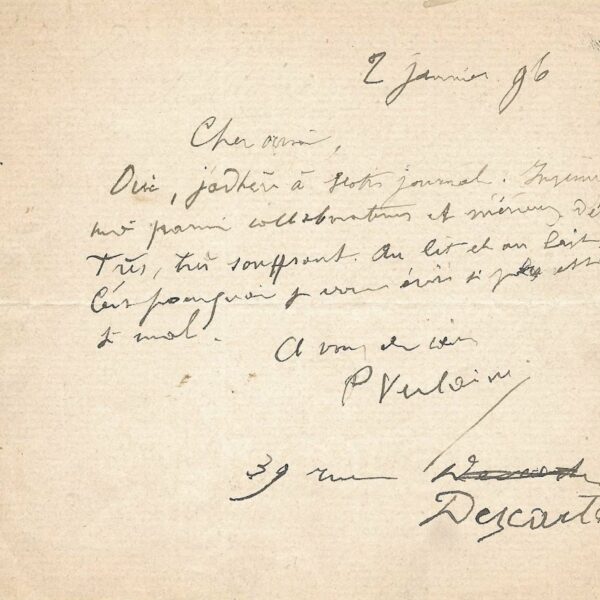 2 janvier 96
Cher ami,
Oui, j'adhère à votre journal.
moi parmi collaborateurs et
Très, très souffrant. Au lit et au lait
C'est pourquoi je vous écris si peu et
si mal.
A vous de cœur
P Verlaine
39 rue
Descartes